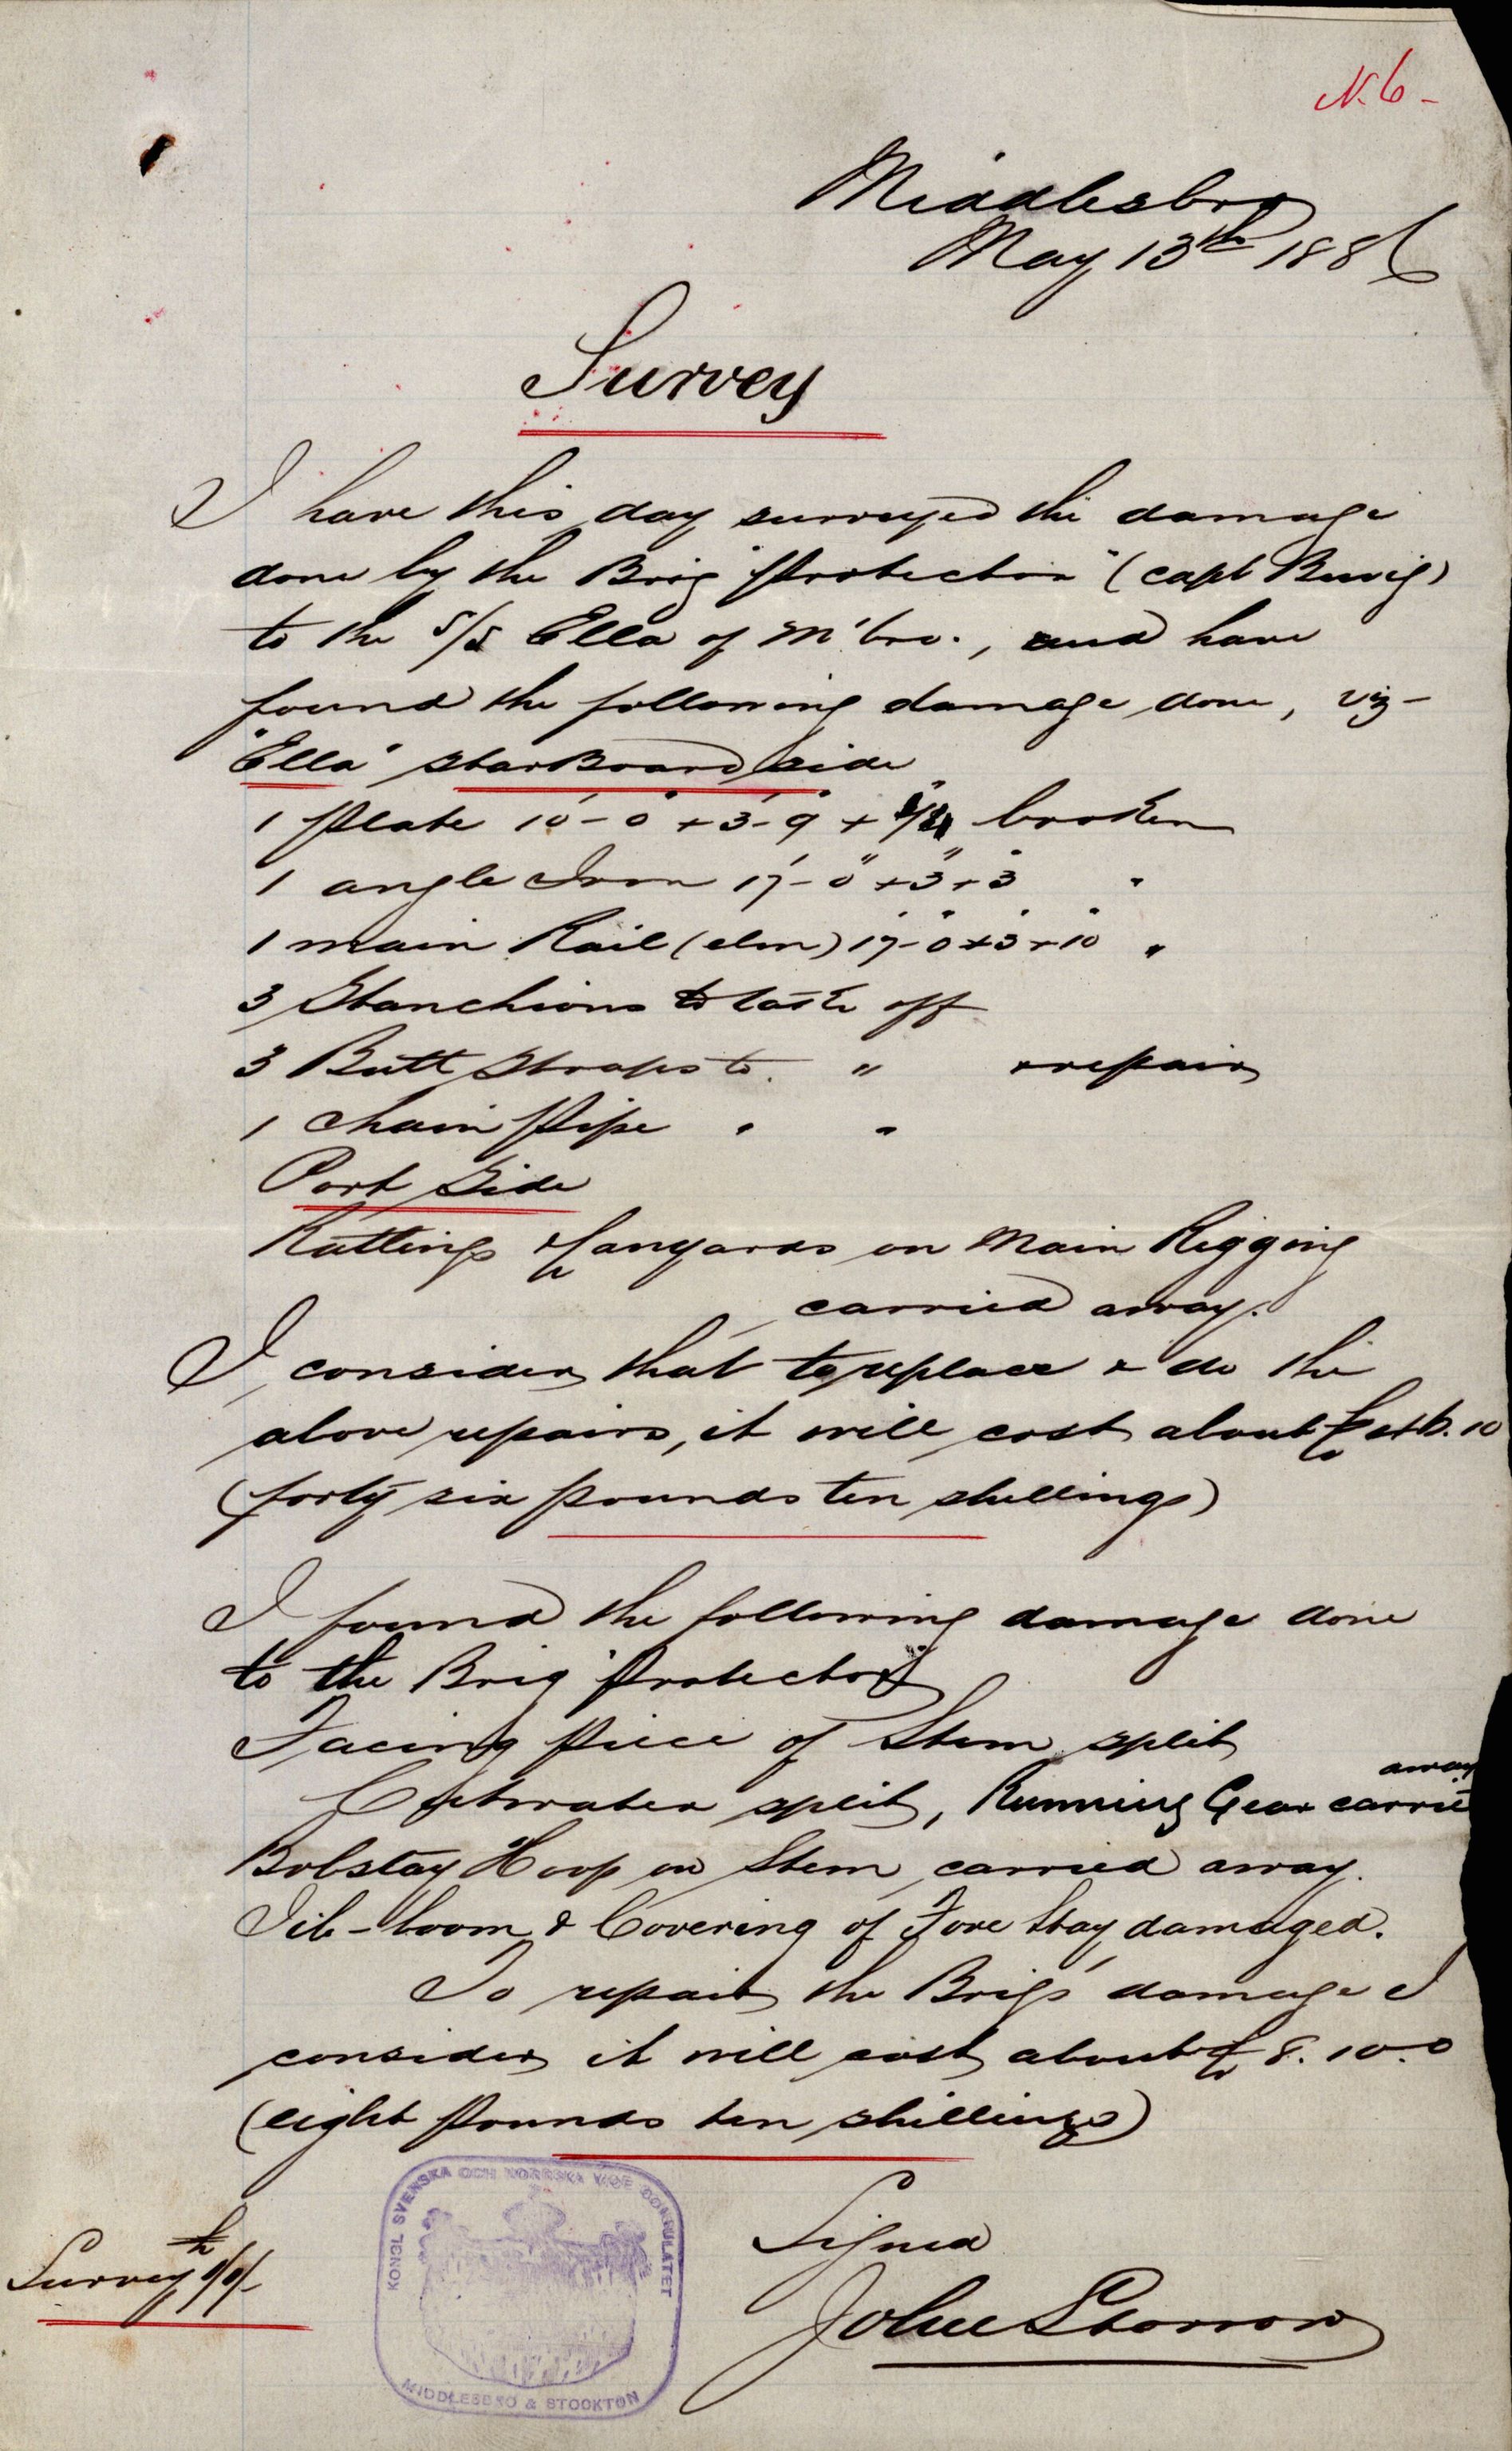 N. 6 -
Middlesbro
May 13th 1886
Survey
I have this day surveyed the damage
done by the Brig "Protector" (capt Buvig)
to the S/S Ella of M'bro., and have
found the following damage done, viz -
"Ella" StarBoard side
1 Plate 10'-0" + 3'-9" + broken
1 angle Iron 17'-0" + 3" + 3" "
1 main Rail (elm) 17'-0" + 3" + 10" "
3 Stanchions to take off
3 Butt Straps to " & repair
1 Chain Pipe " "
Port Side
Ratlings & Lanyards on Main Rigging
carried away.
I consider that to replace & do the
above repairs, it will cost about £46.10
(forty six pounds ten shillings)
I found the following damage done
to the Brig "Protector"
Facing Piece of Stem split
Cutwater split, Running Gear carried away
Bobstay Hoop on Stem carried away.
Jib-boom & Covering of Fore Stay damaged.
To repair the Brig's damage I
consider it will cost about £8.10.0
(eight Pounds ten shillings)
Signed
John Storrow
Survey
KONGL SVENSKA OCH NORRSKA VICE CONSULATET
MIDDLESBRO & STOCKTON